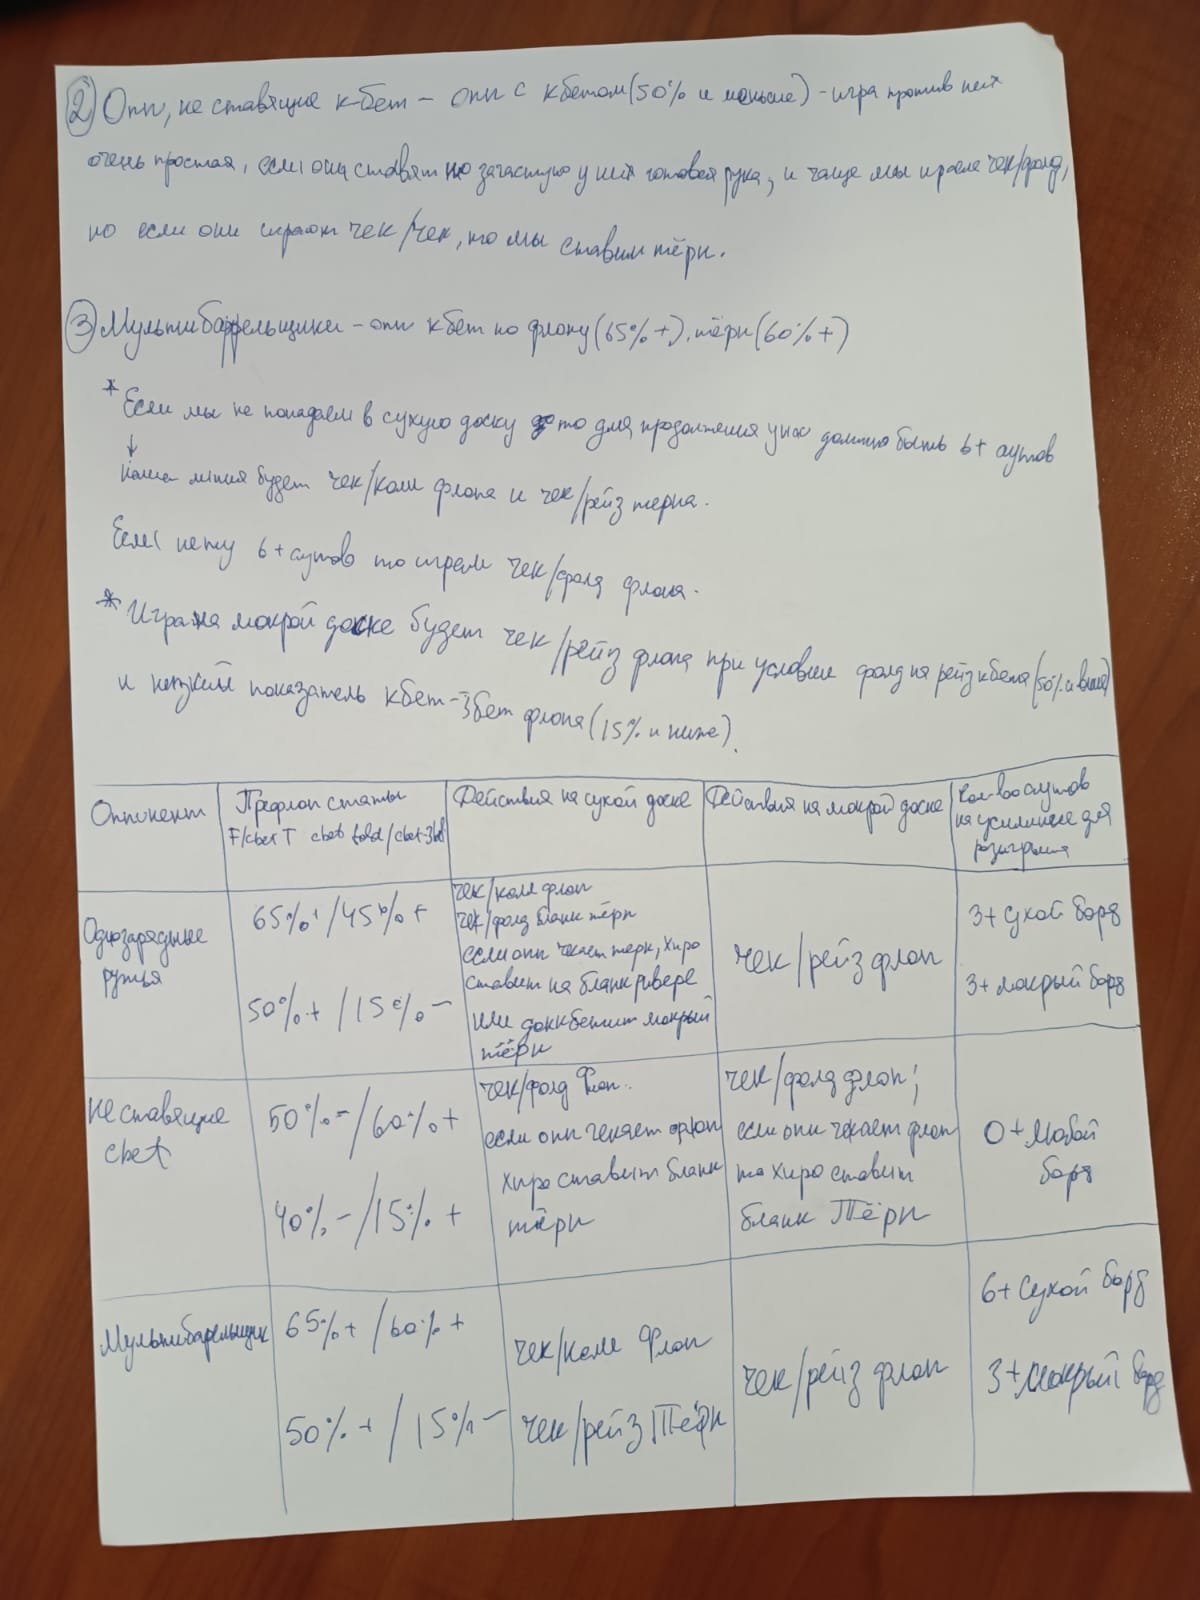 ② Опы, не ставящие кбет – опы с кбетом (50% и меньше) – игра против них
очень простая, если они ставят то зачастую у них готовая рука, и чаще мы играем чек/фолд,
но если они играют чек/чек, то мы ставим тёрн.
③ Мультибаррельщики – опы кбет по флопу (65%+), тёрн (60%+)
* Если мы не попадаем в сухую доску то для продолжения у нас должно быть 6+ аутов
↓
наша линия будет чек/колл флопа и чек/рейз терна.
Если нету 6+ аутов то играем чек/фолд флопа.
* Игра на мокрой доске будет чек/рейз флопа при условии фолд на рейз кбета (50% и выше)
и низкий показатель кбет-3бет флопа (15% и ниже).
Оппонент
Префлоп статы
F/cbet T cbet fold/cbet-3bet
Действия на сухой доске
Действия на мокрой доске
Кол-во аутов
на усиление для
розыгрыша
Однозарядные
ружья
65%+/45%+
50%+/15%-
чек/колл флоп
чек/фолд бланк тёрн
если опп чекает терн, Хиро
ставит на бланк ривере
или донкбетит мокрый
тёрн
чек/рейз флоп
3+ сухой борд
3+ мокрый борд
Не ставящие
cbet
50%-/60%+
40%-/15%+
чек/фолд Флоп.
если опп чекает флоп
Хиро ставит бланк
тёрн
чек/фолд флоп;
если опп чекает флоп
то хиро ставит
бланк Тёрн
0+ любой
борд
Мультибарельщик
65%+/60%+
50%+/15%-
чек/колл Флоп
чек/рейз Тёрн
чек/рейз флоп
6+ сухой борд
3+ мокрый борд